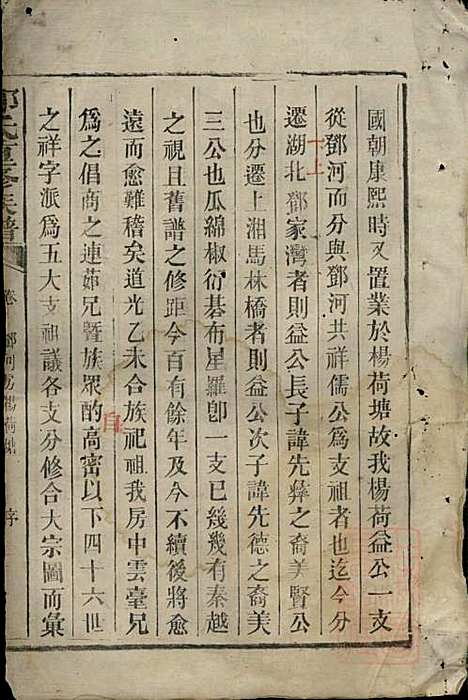 國朝康熙時又置業於楊荷塘故我楊荷益公一支
從鄧河而分與鄧河共祥儒公爲支祖者也迄今分
遷湖北鄧家灣者則益公長子諱先彝之裔美賢公
也分遷上湘馬林橋者則益公次子諱先德之裔美
三公也瓜綿椒衍碁布星羅卽一支已幾幾有秦越
之視且舊譜之修距今百有餘年及今不續後將愈
遠而愈難稽矣道光乙未合族祀祖我房中雲臺兄
爲之倡商之連茹兄暨族眾酌高密以下四十六世
之祥字派爲五大支祖議各支分修合大宗圖而彙
鄧氏重修族譜
卷 鄧河房楊荷塘 序